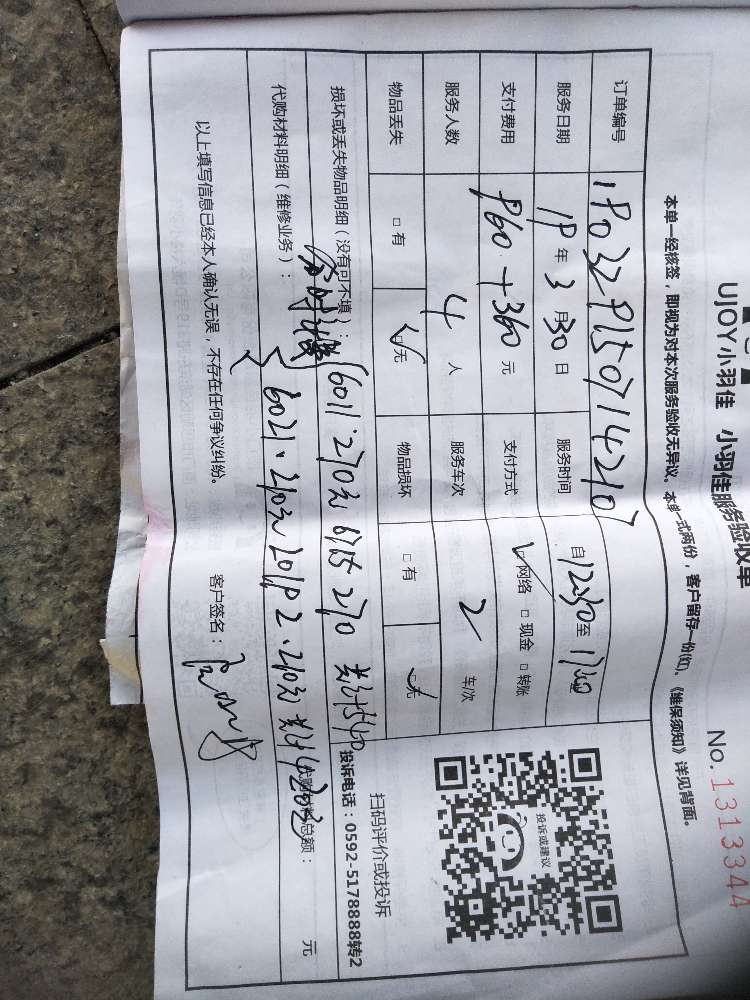 UJOY小羽佳 小羽佳服务验收单
No.1313344
本单一经核签，即视为对本次服务验收无异议。本单一式两份，客户留存一份(红)。《维保须知》详见背面。
订单编号
服务日期 19年3月30日 服务时间 自12:30至
支付费用 960+360元 支付方式 ☑网络 □现金 □转账
服务人数 4人 服务车次 2车/次
物品丢失 □有 ☑无 物品损坏 □有 ☑无
损坏或丢失物品明细（没有可不填）： 6011·270元 6715 270 共计540
代购材料明细（维修业务）： 6021·210元 2019 2·210元 共计420元 代购材料总额： 元
以上填写信息已经本人确认无误，不存在任何争议纠纷。
客户签名：
投诉或建议
扫码评价或投诉
投诉电话：0592-5178888转2